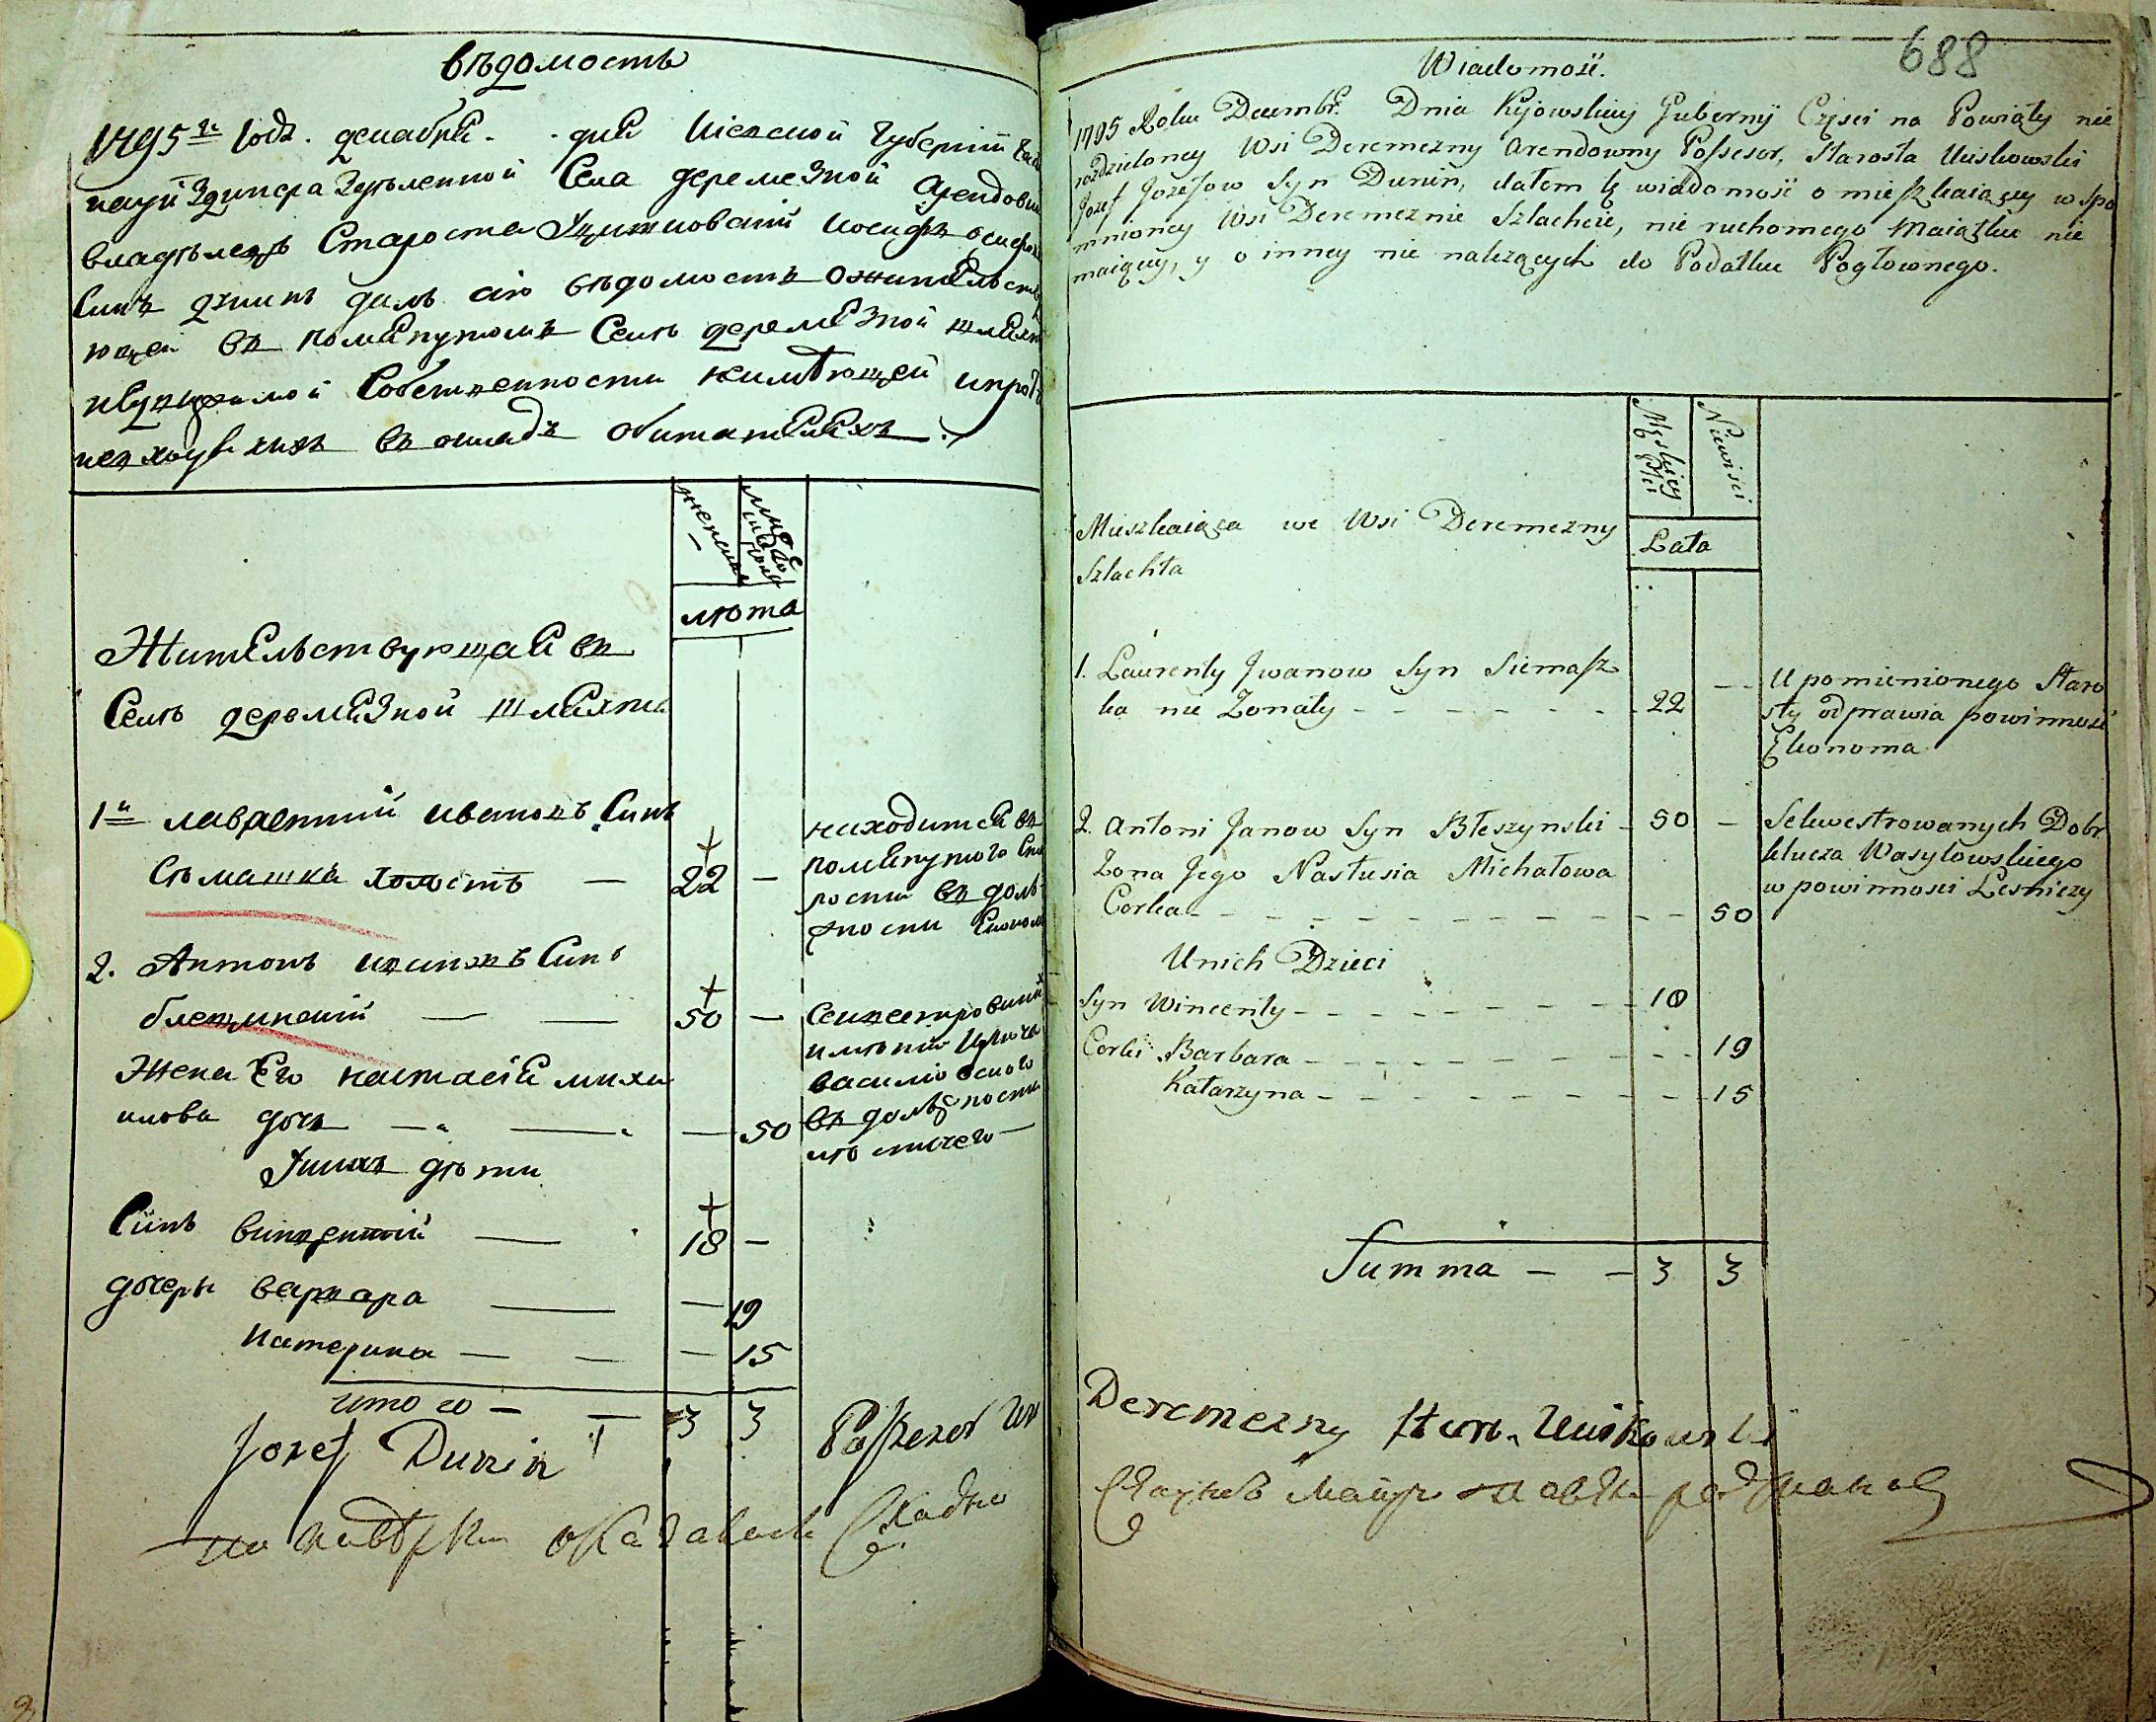 Вѣдомость
1795го Года. декабря. дня Киевской Губернии
Села деремезной Арендовн
владѣлецъ Староста Уцишковский Иосифъ
Синъ дунинъ далъ сію вѣдомость о жителств
ющей въ помянутомъ Селѣ деремезной шлях
недвижимой Собственности неимѣющей
въ окладъ обитателяхъ
женска
мужеска пола
лѣта
Жителствующая въ
Селѣ деремезной шляхта
1й лаврентий ивановъ Синъ
Сѣмашка холостъ — 22 —
находится въ
помянутого Ста
рости въ долж
ности Економ
2. Антонъ ивановъ Синъ
блещинский — — 50 —
Секвестрований
имѣний ключа
василювского
въ должности
лѣсничего —
Жена Его настасія миха
илова дочь — — — 50
У нихъ дѣти
Синъ винцентий — 18 —
дочери варвара — — 19
Катерина — — — 15
итого — — 3 3
Jozef Dunin Possesor Wsi
по повѣрки оказалось Сходно
688
Wiadomość.
1795 Roku Decembr. Dnia Kijowskiey Gubernij Częsci na Powiaty nie
rozdzieloney Wsi Deremezny Arendowny Possesor, Starosta Uciskowski
Jozef Jozefow Syn Dunin, dałem tę wiadomość o mieszkaiącey w spo
mnioney Wsi Deremeznie Szlachcie, nie ruchomego Maiątku nie
maiącey, y o inney nie nalezących do Podatku Pogłownego.
Męskiey Płci
Niewiesci
Mieszkaiąca we Wsi Deremezny
Szlachta
Lata
1. Laurenty Jwanow Syn Siemasz
ka nie Zonaty - - - - - - 22
U pomienionego Staro
sty odprawia powinnosć
Ekonoma
2. Antoni Janow Syn Błeszynski - 50 -
Zona Jego Nastusia Michałowa
Corka - - - - - - - - - - - 50
Sekwestrowanych Dobr
klucza Wasylowskiego
w powinnosci Lesniczy
U nich Dzieci
Syn Wincenty - - - - - - - 18
Corki Barbara - - - - - - - - 19
Katarzyna - - - - - - - - 15
Summa - - 3 3
Deremezny Star. Uciskowski